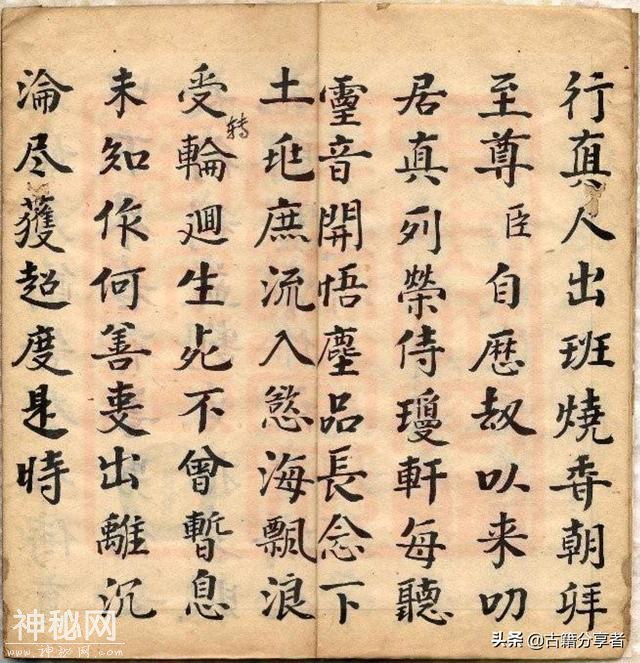 行真人出班燒香朝拜
至尊臣自歷刼以来叨
居真列榮侍瓊軒每聽
靈音開悟塵品長念下
土䖏庶流入慾海飄浪
受輪轉廻生死不曾暫息
未知作何善𠫤出離沉
淪尽獲超度是時
神秘网
www.shenmiwang.com
头条@古籍分享者